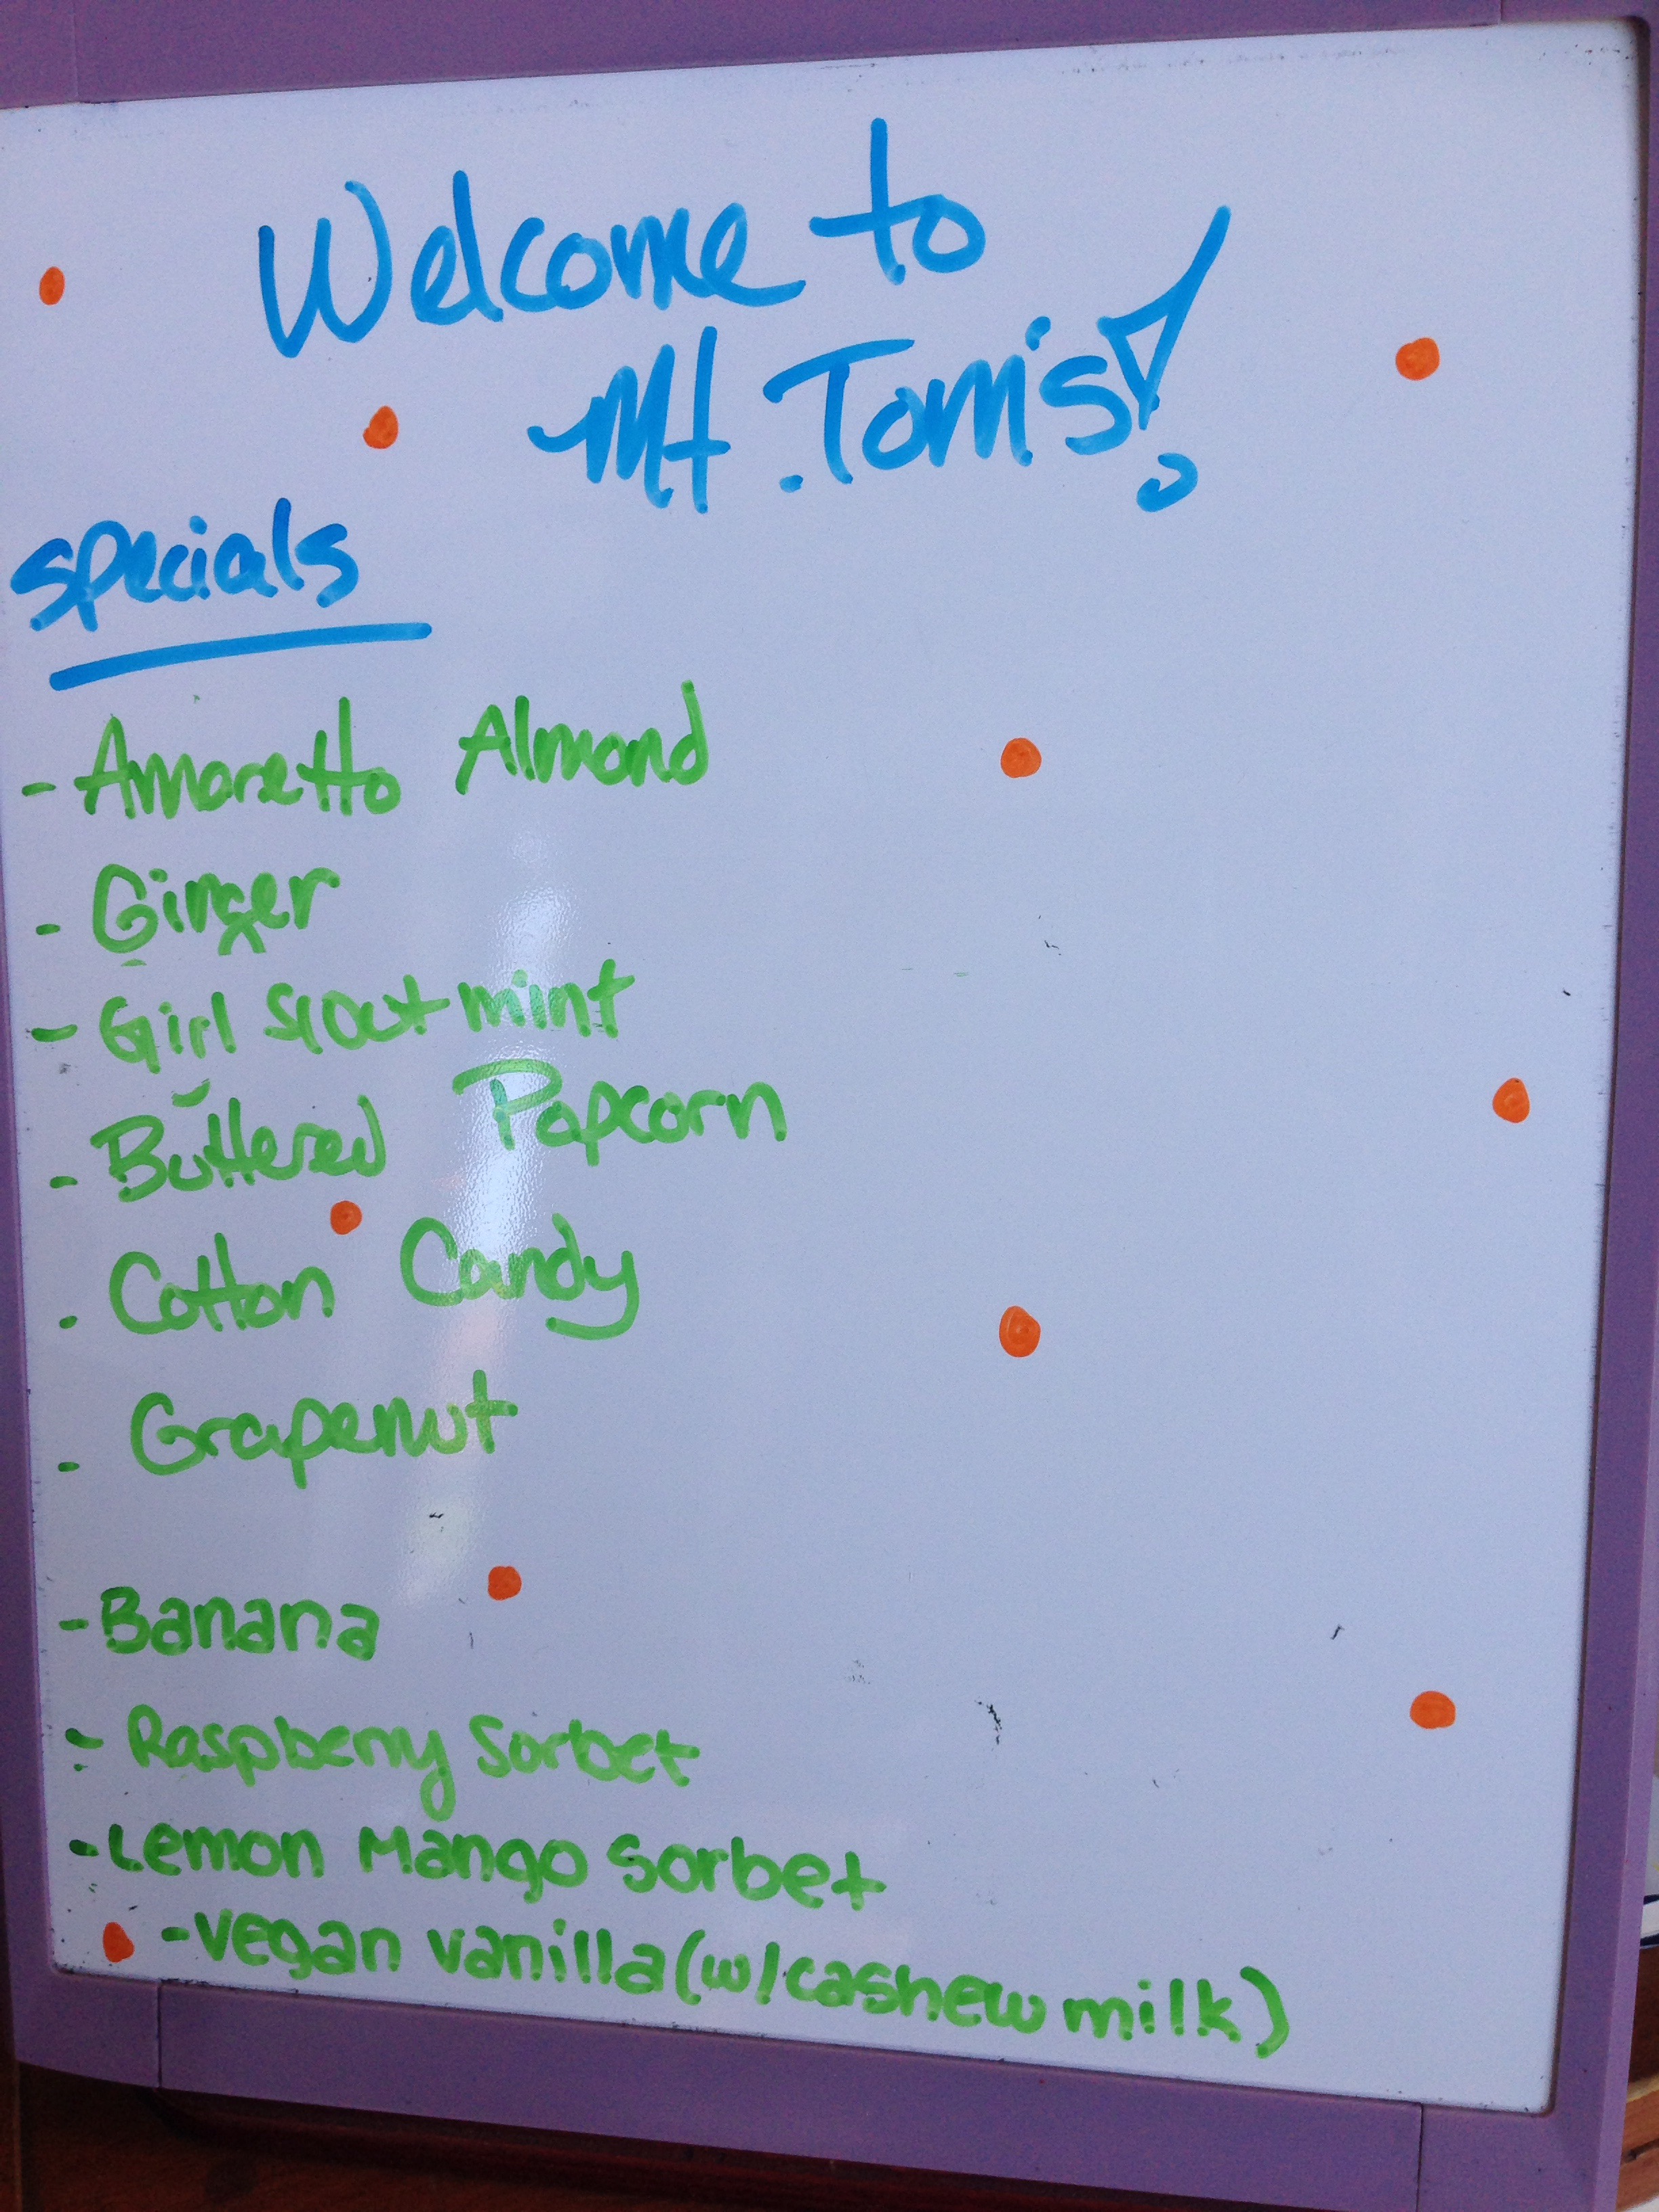 Welcome to
Mt. Tom's!
specials
- Amaretto Almond
- Ginger
- Girl scout mint
- Buttered Popcorn
- Cotton Candy
- Grapenut
- Banana
- Raspberry Sorbet
- Lemon Mango Sorbet
- Vegan vanilla (w/cashew milk)